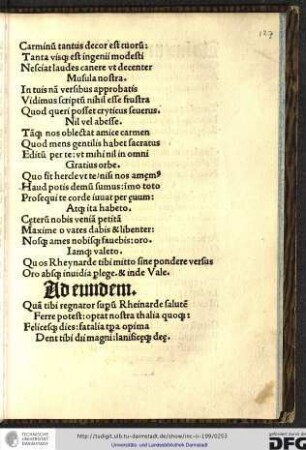 127
Carminũ tantus decor est tuorũ:
Tanta visqꝫ est ingenii modesti
Nesciat laudes canere vt decenter
Musula nostra.
In tuis nã versibus approbatis
Vidimus scriptũ nihil esse frustra
Quod queri posset cryticus seuerus.
Nil vel abesse.
Tãqꝫ nos oblectat amice carmen
Quod mens gentilis habet sacratus
Editũ per te: vt mihi nil in omni
Gratius orbe.
Quo fit hercle vt te/nisi nos amem⁹
Haud potis demũ sumus: imo toto
Prosequi te corde iuuat per ęuum:
Atqꝫ ita habeto.
Ceterũ nobis veniã petitã
Maxime o vates dabis & libenter:
Nosqꝫ ames nobisqꝫ fauebis: oro.
Iamqꝫ valeto.
Quos Rheynarde tibi mitto sine pondere versus
Oro absqꝫ inuidia plege. & inde Vale.
Ad eundem.
Quã tibi regnator supũ Rheinarde salutẽ
Ferre potest: optat nostra thalia quoqꝫ:
Felicesqꝫ dies: fatalia tꝑa opima
Dent tibi dii magni: lanificęqꝫ deę.
TECHNISCHE UNIVERSITÄT DARMSTADT
http://tudigit.ulb.tu-darmstadt.de/show/inc-iv-199/0253
Universitäts- und Landesbibliothek Darmstadt
gefördert durch die
DFG